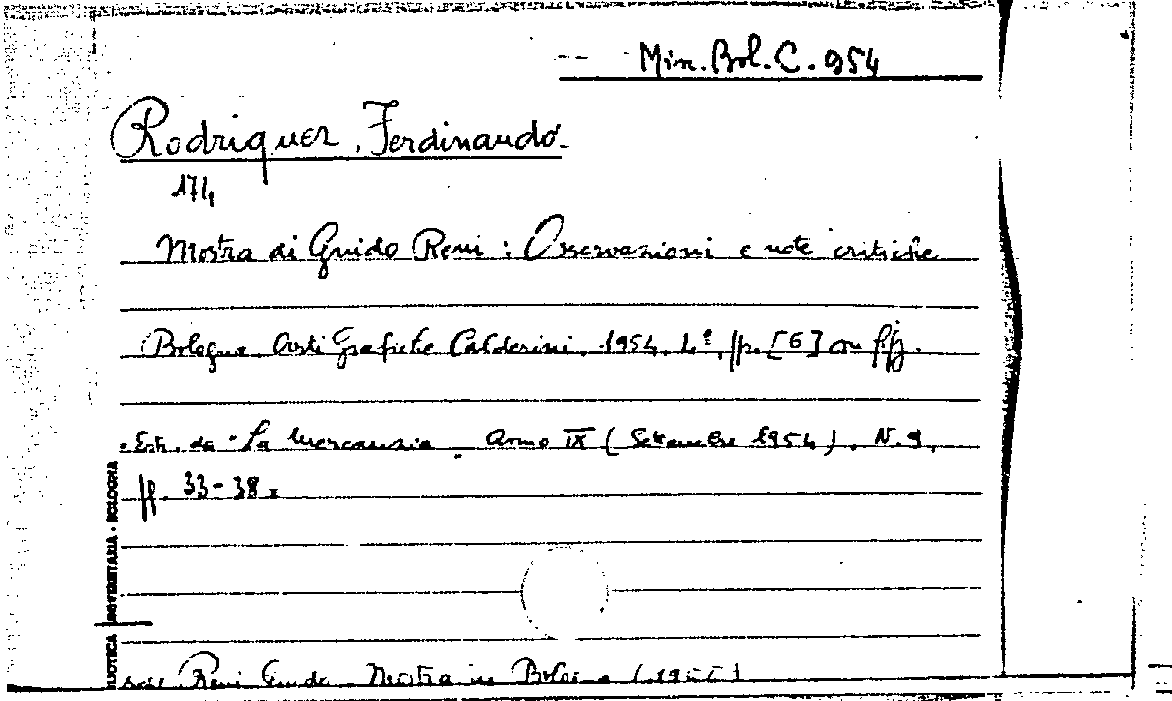 Min. Bol. C. 954
Rodriguez, Ferdinando.
174
Mostra di Guido Reni : Osservazioni e note critiche
Bologna. Arti Grafiche Calderini. 1954. 4º. pp. [6] con figg.
Estr. da "La Mercanzia. Anno IX (Settembre 1954). N. 9,
pp. 33-38.
BIBLIOTECA UNIVERSITARIA - BOLOGNA
Reni Guido Mostra in Bologna